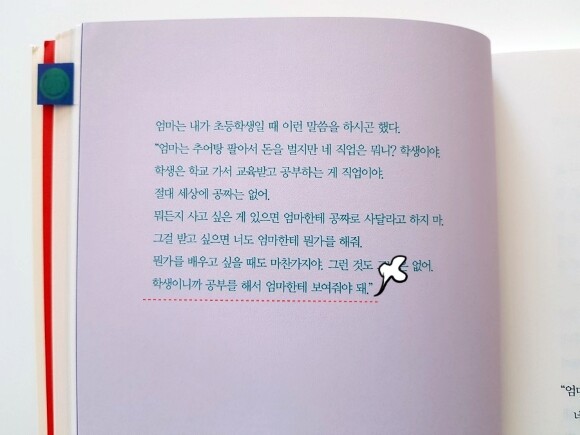 엄마는 내가 초등학생일 때 이런 말씀을 하시곤 했다.
“엄마는 추어탕 팔아서 돈을 벌지만 네 직업은 뭐니? 학생이야.
학생은 학교 가서 교육받고 공부하는 게 직업이야.
절대 세상에 공짜는 없어.
뭐든지 사고 싶은 게 있으면 엄마한테 공짜로 사달라고 하지 마.
그걸 받고 싶으면 너도 엄마한테 뭔가를 해줘.
뭔가를 배우고 싶을 때도 마찬가지야. 그런 것도 없어.
학생이니까 공부를 해서 엄마한테 보여줘야 돼.”